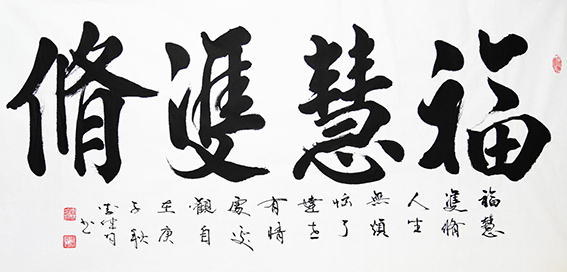 福慧雙脩
福慧
雙脩
人生
無煩
惱了
達世
有情
處處
觀自
在庚
子秋
书